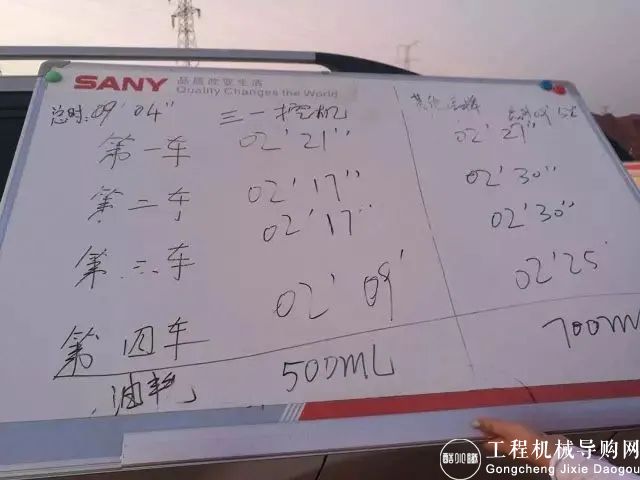 SANY 品质改变世界
Quality Changes the World
总时:09'04" 三一挖机
第一车 02'21" 02'27"
第二车 02'17" 02'30"
第三车 02'17" 02'30"
第四车 02'09' 02'25'
油耗 500ML 700ML
工程机械导购网
Gongcheng Jixie Daogou